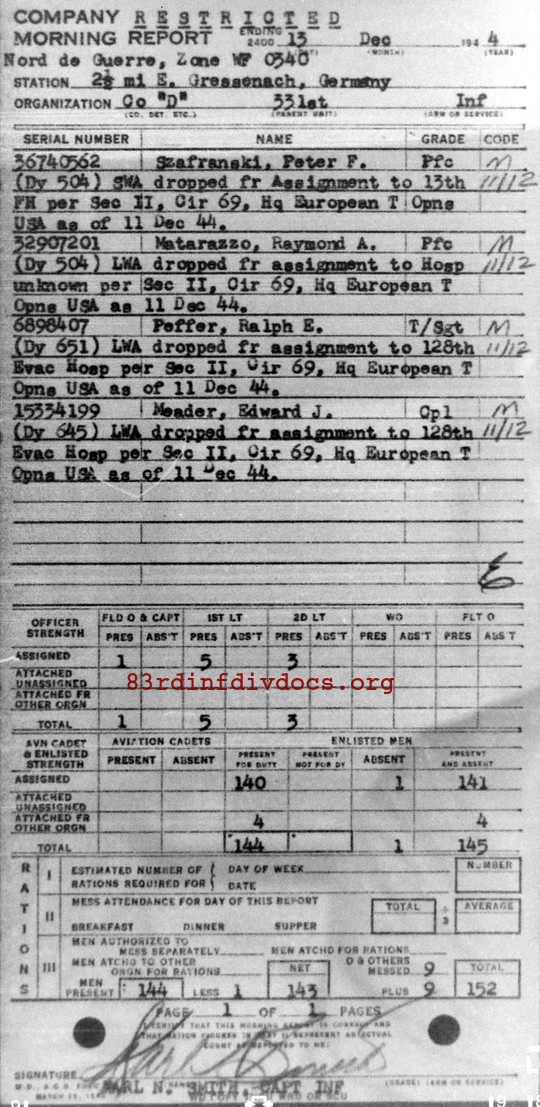 COMPANY RESTRICTED
MORNING REPORT ENDING 2400 13 Dec 1944
(DAY) (MONTH) (YEAR)
Nord de Guerre, Zone WF 0340
STATION 2½ mi E. Gressenach, Germany
ORGANIZATION Co "D" 331st Inf
(CO. DET. ETC.) (PARENT UNIT) (ARM OR SERVICE)
SERIAL NUMBER NAME GRADE CODE
36740562 Szafranski, Peter F. Pfc M
(Dy 504) SWA dropped fr Assignment to 13th 11/12
FH per Sec II, Cir 69, Hq European T Opns
USA as of 11 Dec 44.
32907201 Matarazzo, Raymond A. Pfc M
(Dy 504) LWA dropped fr assignment to Hosp 11/12
unknown per Sec II, Cir 69, Hq European T
Opns USA as 11 Dec 44.
6898407 Peffer, Ralph E. T/Sgt M
(Dy 651) LWA dropped fr assignment to 128th 11/12
Evac Hosp per Sec II, Cir 69, Hq European T
Opns USA as of 11 Dec 44.
15334199 Meader, Edward J. Cpl M
(Dy 645) LWA dropped fr assignment to 128th 11/12
Evac Hosp per Sec II, Cir 69, Hq European T
Opns USA as of 11 Dec 44.
E
OFFICER STRENGTH FLD O & CAPT 1ST LT 2D LT WO FLT O
PRES ABS'T PRES ABS'T PRES ABS'T PRES ABS'T PRES ABS T
ASSIGNED 1 5 3
ATTACHED UNASSIGNED
83rdinfdivdocs.org
ATTACHED FR OTHER ORGN
TOTAL 1 5 3
AVN CADET & ENLISTED STRENGTH AVIATION CADETS ENLISTED MEN
PRESENT ABSENT PRESENT FOR DUTY PRESENT NOT FOR DY ABSENT PRESENT AND ABSENT
ASSIGNED 140 1 141
ATTACHED UNASSIGNED
ATTACHED FR OTHER ORGN 4 4
TOTAL 144 1 145
RATIONS
I ESTIMATED NUMBER OF RATIONS REQUIRED FOR { DAY OF WEEK DATE NUMBER
II MESS ATTENDANCE FOR DAY OF THIS REPORT TOTAL ÷ 3 AVERAGE
BREAKFAST DINNER SUPPER
III MEN AUTHORIZED TO MESS SEPARATELY MEN ATCHD FOR RATIONS
MEN ATCHD TO OTHER ORGN FOR RATIONS NET O & OTHERS MESSED 9 TOTAL
MEN PRESENT 144 LESS 1 143 PLUS 9 152
PAGE 1 OF 1 PAGES
I CERTIFY THAT THIS MORNING REPORT IS CORRECT AND
THAT RATION FIGURES IN PART III REPRESENT ACTUAL
COUNT AS REPORTED TO ME:
SIGNATURE
KARL N. SMITH, CAPT INF
(GRADE) (ARM OR SERVICE)